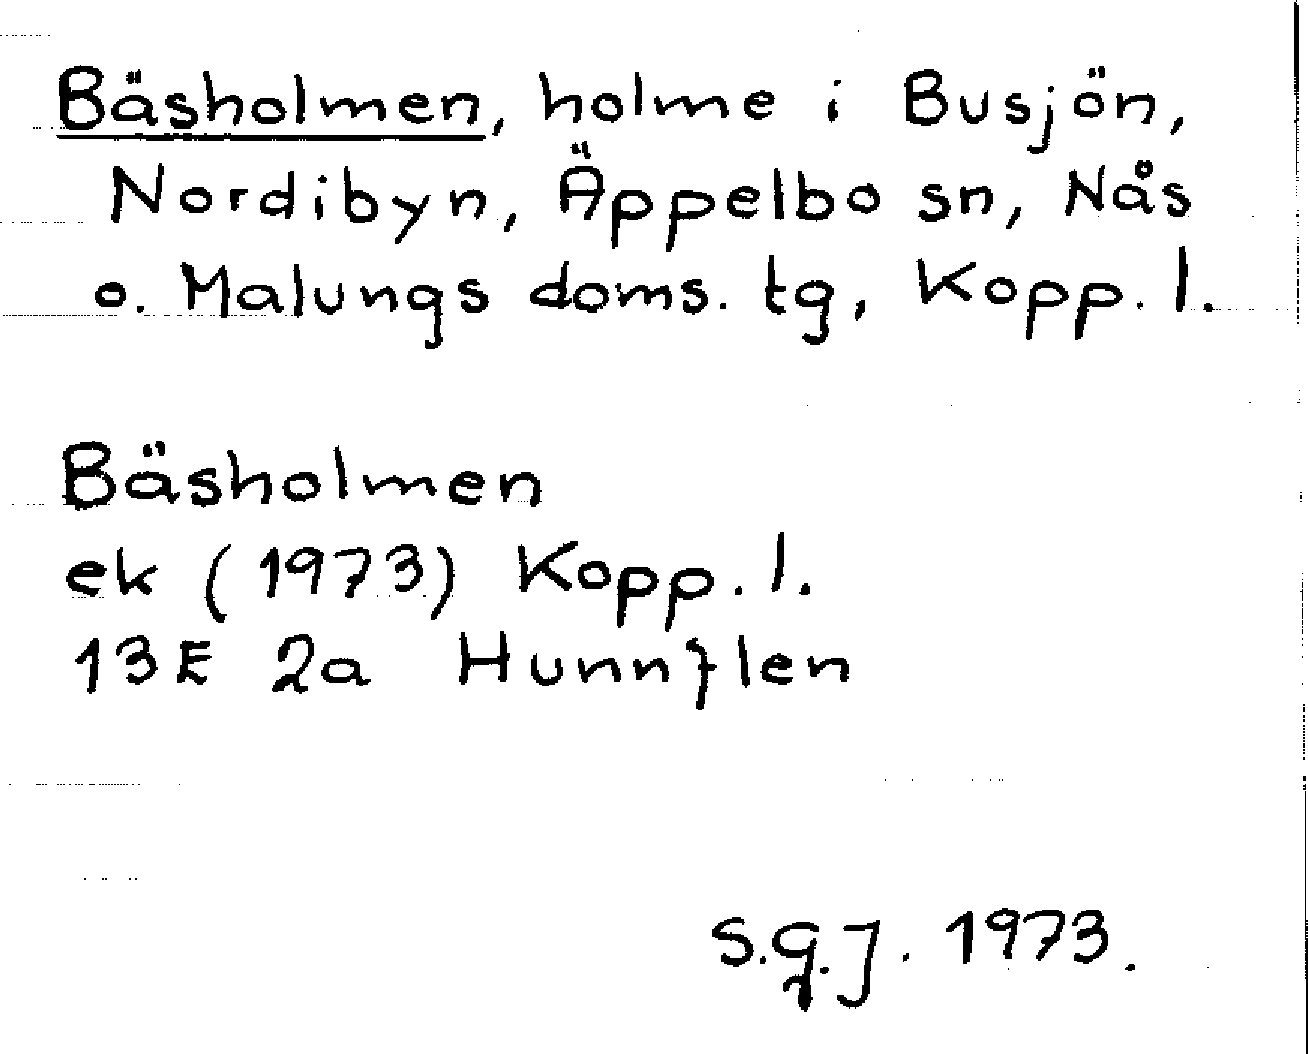 Bäsholmen, holme i Busjön,
Nordibyn, Äppelbo sn, Nås
o. Malungs doms. tg, Kopp. l.
Bäsholmen
ek (1973) Kopp. l.
13E 2a Hunnflen
S.G.J. 1973.